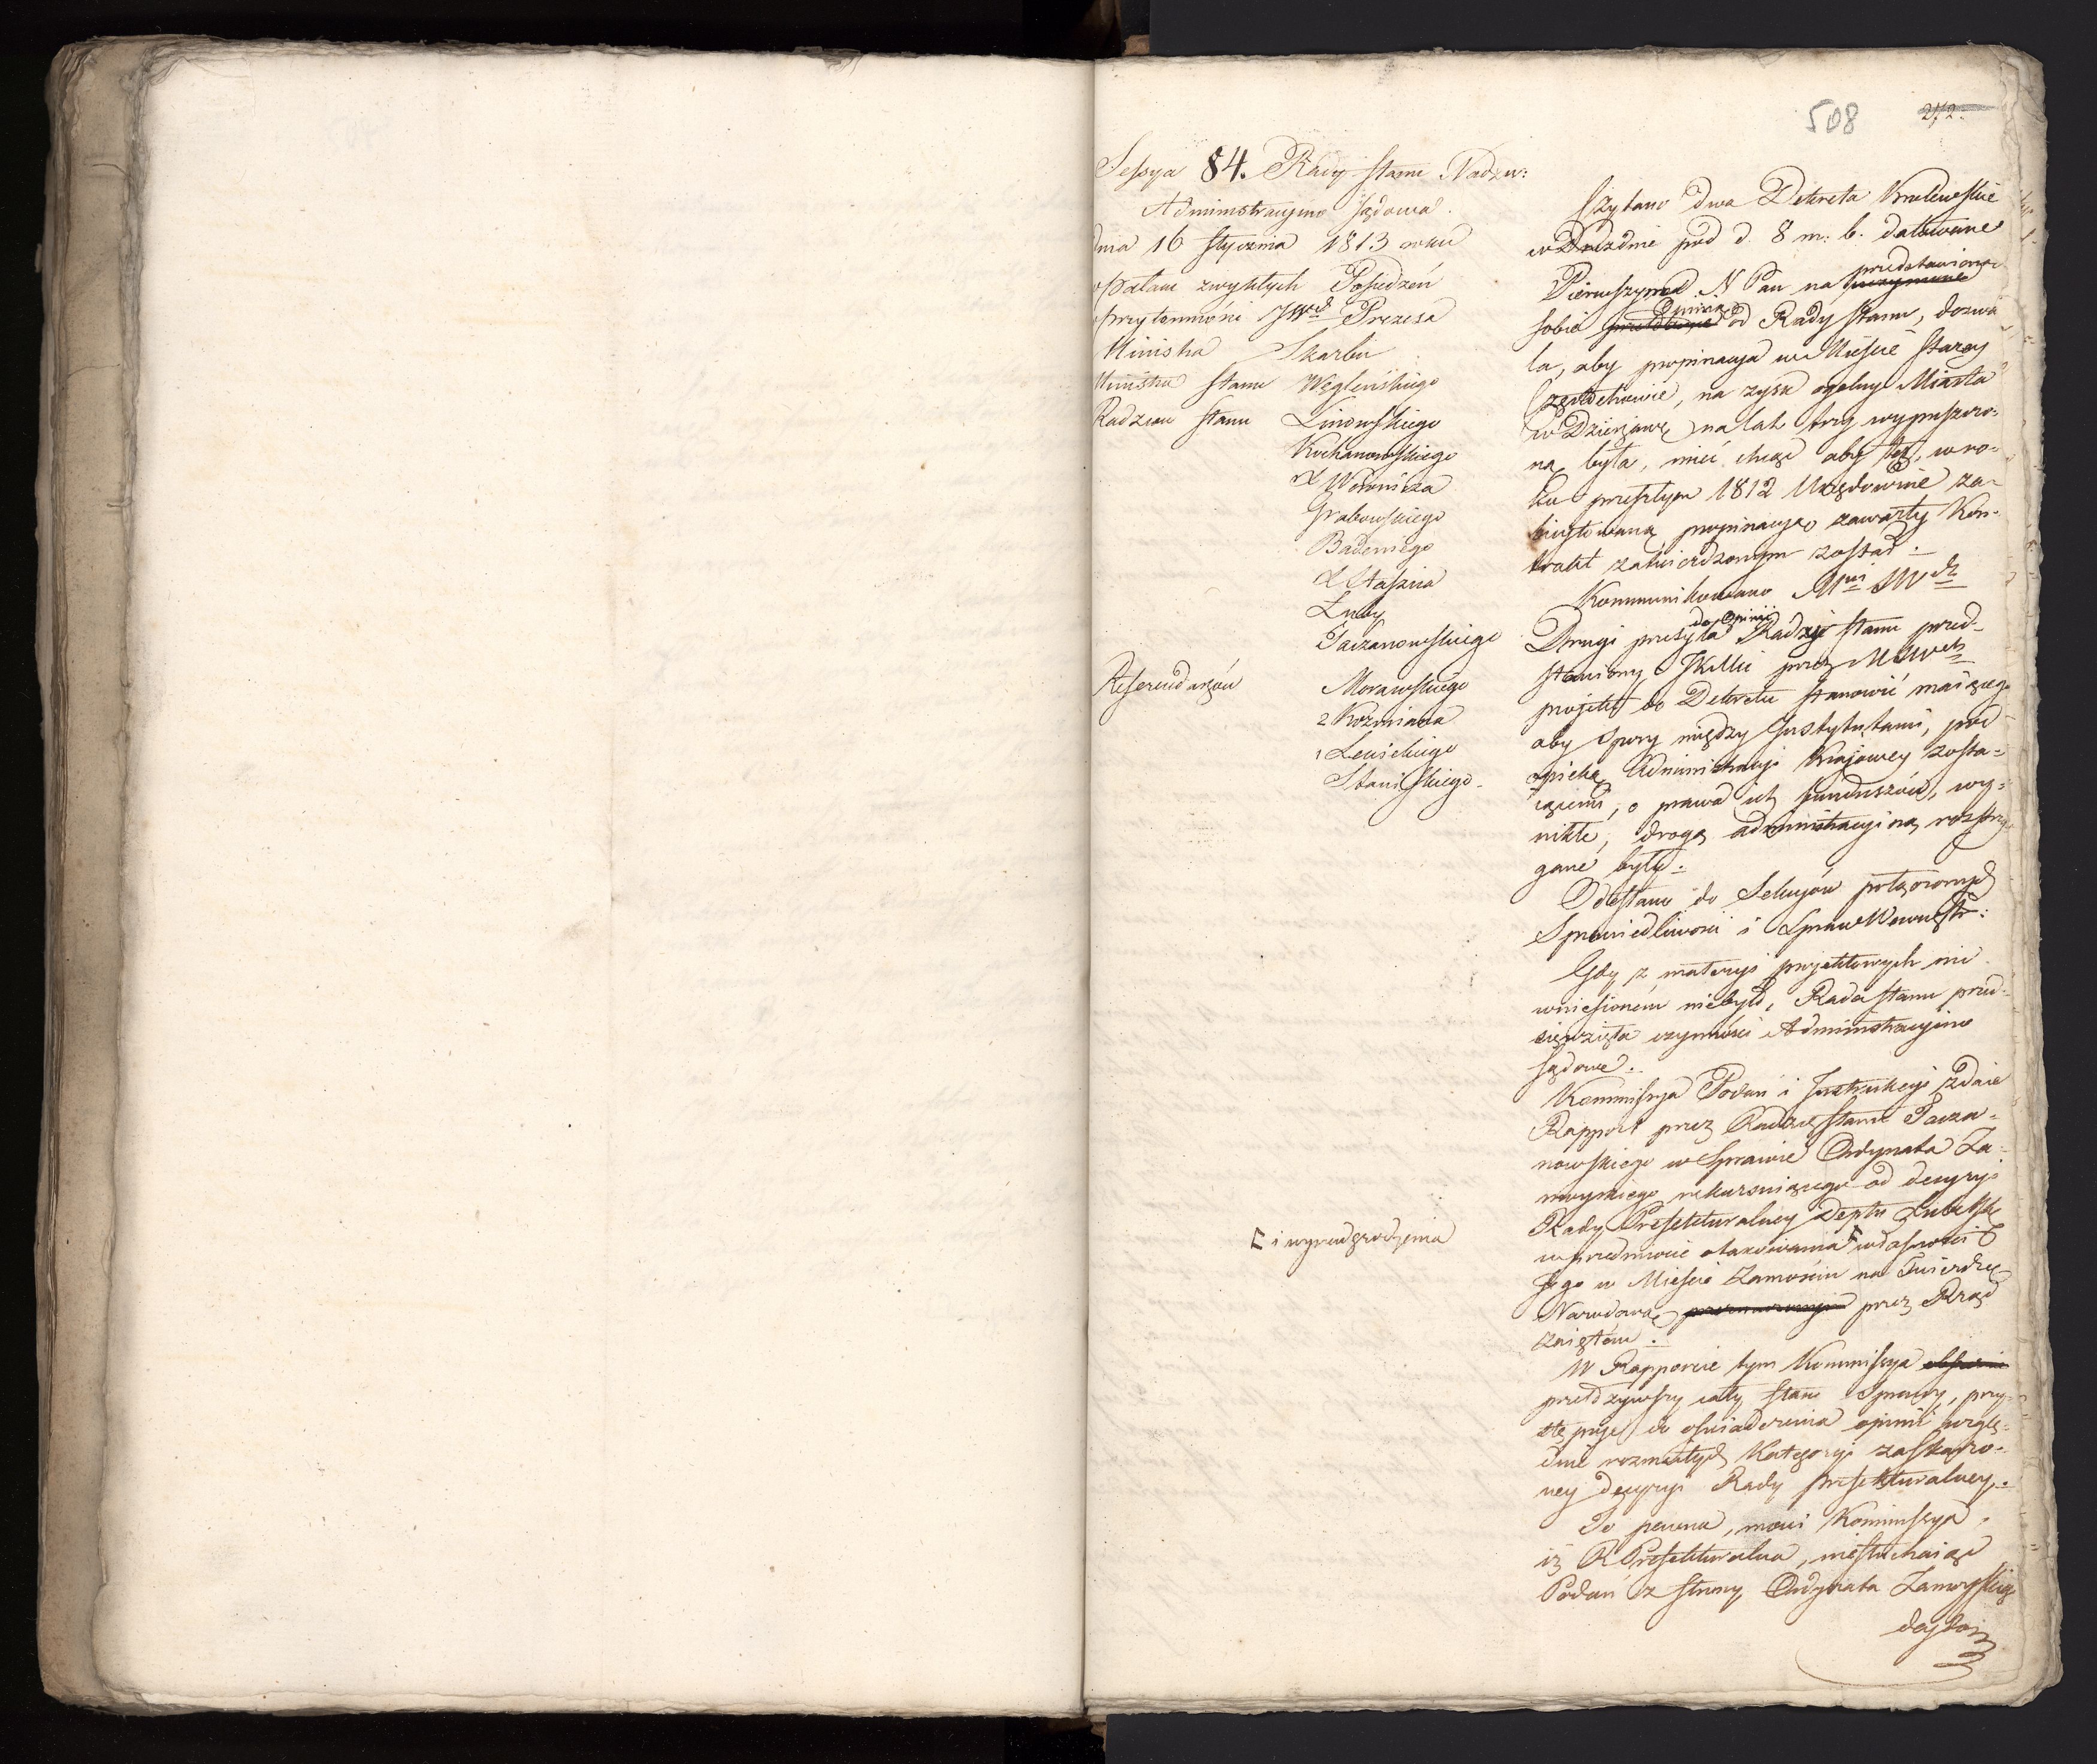 508 272.
Sessya 84. Rady Stanu Nadzw:
Administracyino Sądowa.
dnia 16 Stycznia 1813 roku
w Pałacu zwykłych Posiedzeń
w przytomności JWW Prezesa
Ministra Skarbu
Ministra Stanu Węgleńskiego
Radzców Stanu Linowskiego
Kochanowskiego
X Woronicza
Grabowskiego
Badeniego
X Staszica
Łuby
Taczanowskiego
Referendarzów Morawskiego
2 Kozmiana
1 Lewickiego
Staniskiego
Czytano dwa Dekreta Krolewskie
w Dreźnie pod d. 8 m: b. datowane
Pierwszym N Pan na przedstawioną
sobie Opinią od Rady Stanu, dozwa
la, aby propinacya w Mieście Starey
Częstochowie, na zysk ogolny Miasta
w Dzierżawę na lat trzy wypuszczo-
ną była, mieć chcąc aby też, w ro-
ku przeszłym 1812 Urzędownie za-
propinacyą zawarty Kon-
trakt zatwierdzonym został.
Kommunikowano Mwi SWch
Drugi przesyła do Opinii Radzie Stanu przed-
stawiony JKMci przez MSWch
projekt do Dekretu stanowić maiącego
aby spory między Instytutami, pod
opieką Administracyi Kraiowey zosta-
iącemi, o prawa ich funduszów, wy-
nikłe, drogą administracyiną rozstrzy
gane były.
Odesłano do Sekcyów połączonych
Sprawiedliwości i Spraw Wewnętr:
Gdy z materyi projektowych nic
wniesionem niebyło, Rada Stanu przed-
sięwzięła czynności Administracyino
Sądowe.
Kommissya Podań i Instrukcyi zdaie
Rapport przez Radzcę Stanu Tacza-
nowskiego w Sprawie Ordynata Za-
moyskiego rekursuiącego od decyzyi
Rady Prefekturalney Deptu Lubelsk
w przedmiocie otaxowania ⌈ własności
⌈ i wynadgrodzenia
Jego w Mieście Zamościu na Twierdzę
Narodową przez Rząd
zaiętem.
W Rapporcie tym Kommissya
przełożywszy cały stan Sprawy, przy-
stępuie do oświadczenia opinii wzglę-
dnie rozmaitych Kategoryi zaskarżo-
ney decyzyi Rady Prefekturalney.
To pewna, mowi Kommissya,
iż R Prefekturalna, niesłuchaiąc
Podań z strony Ordynata Zamoyskieg